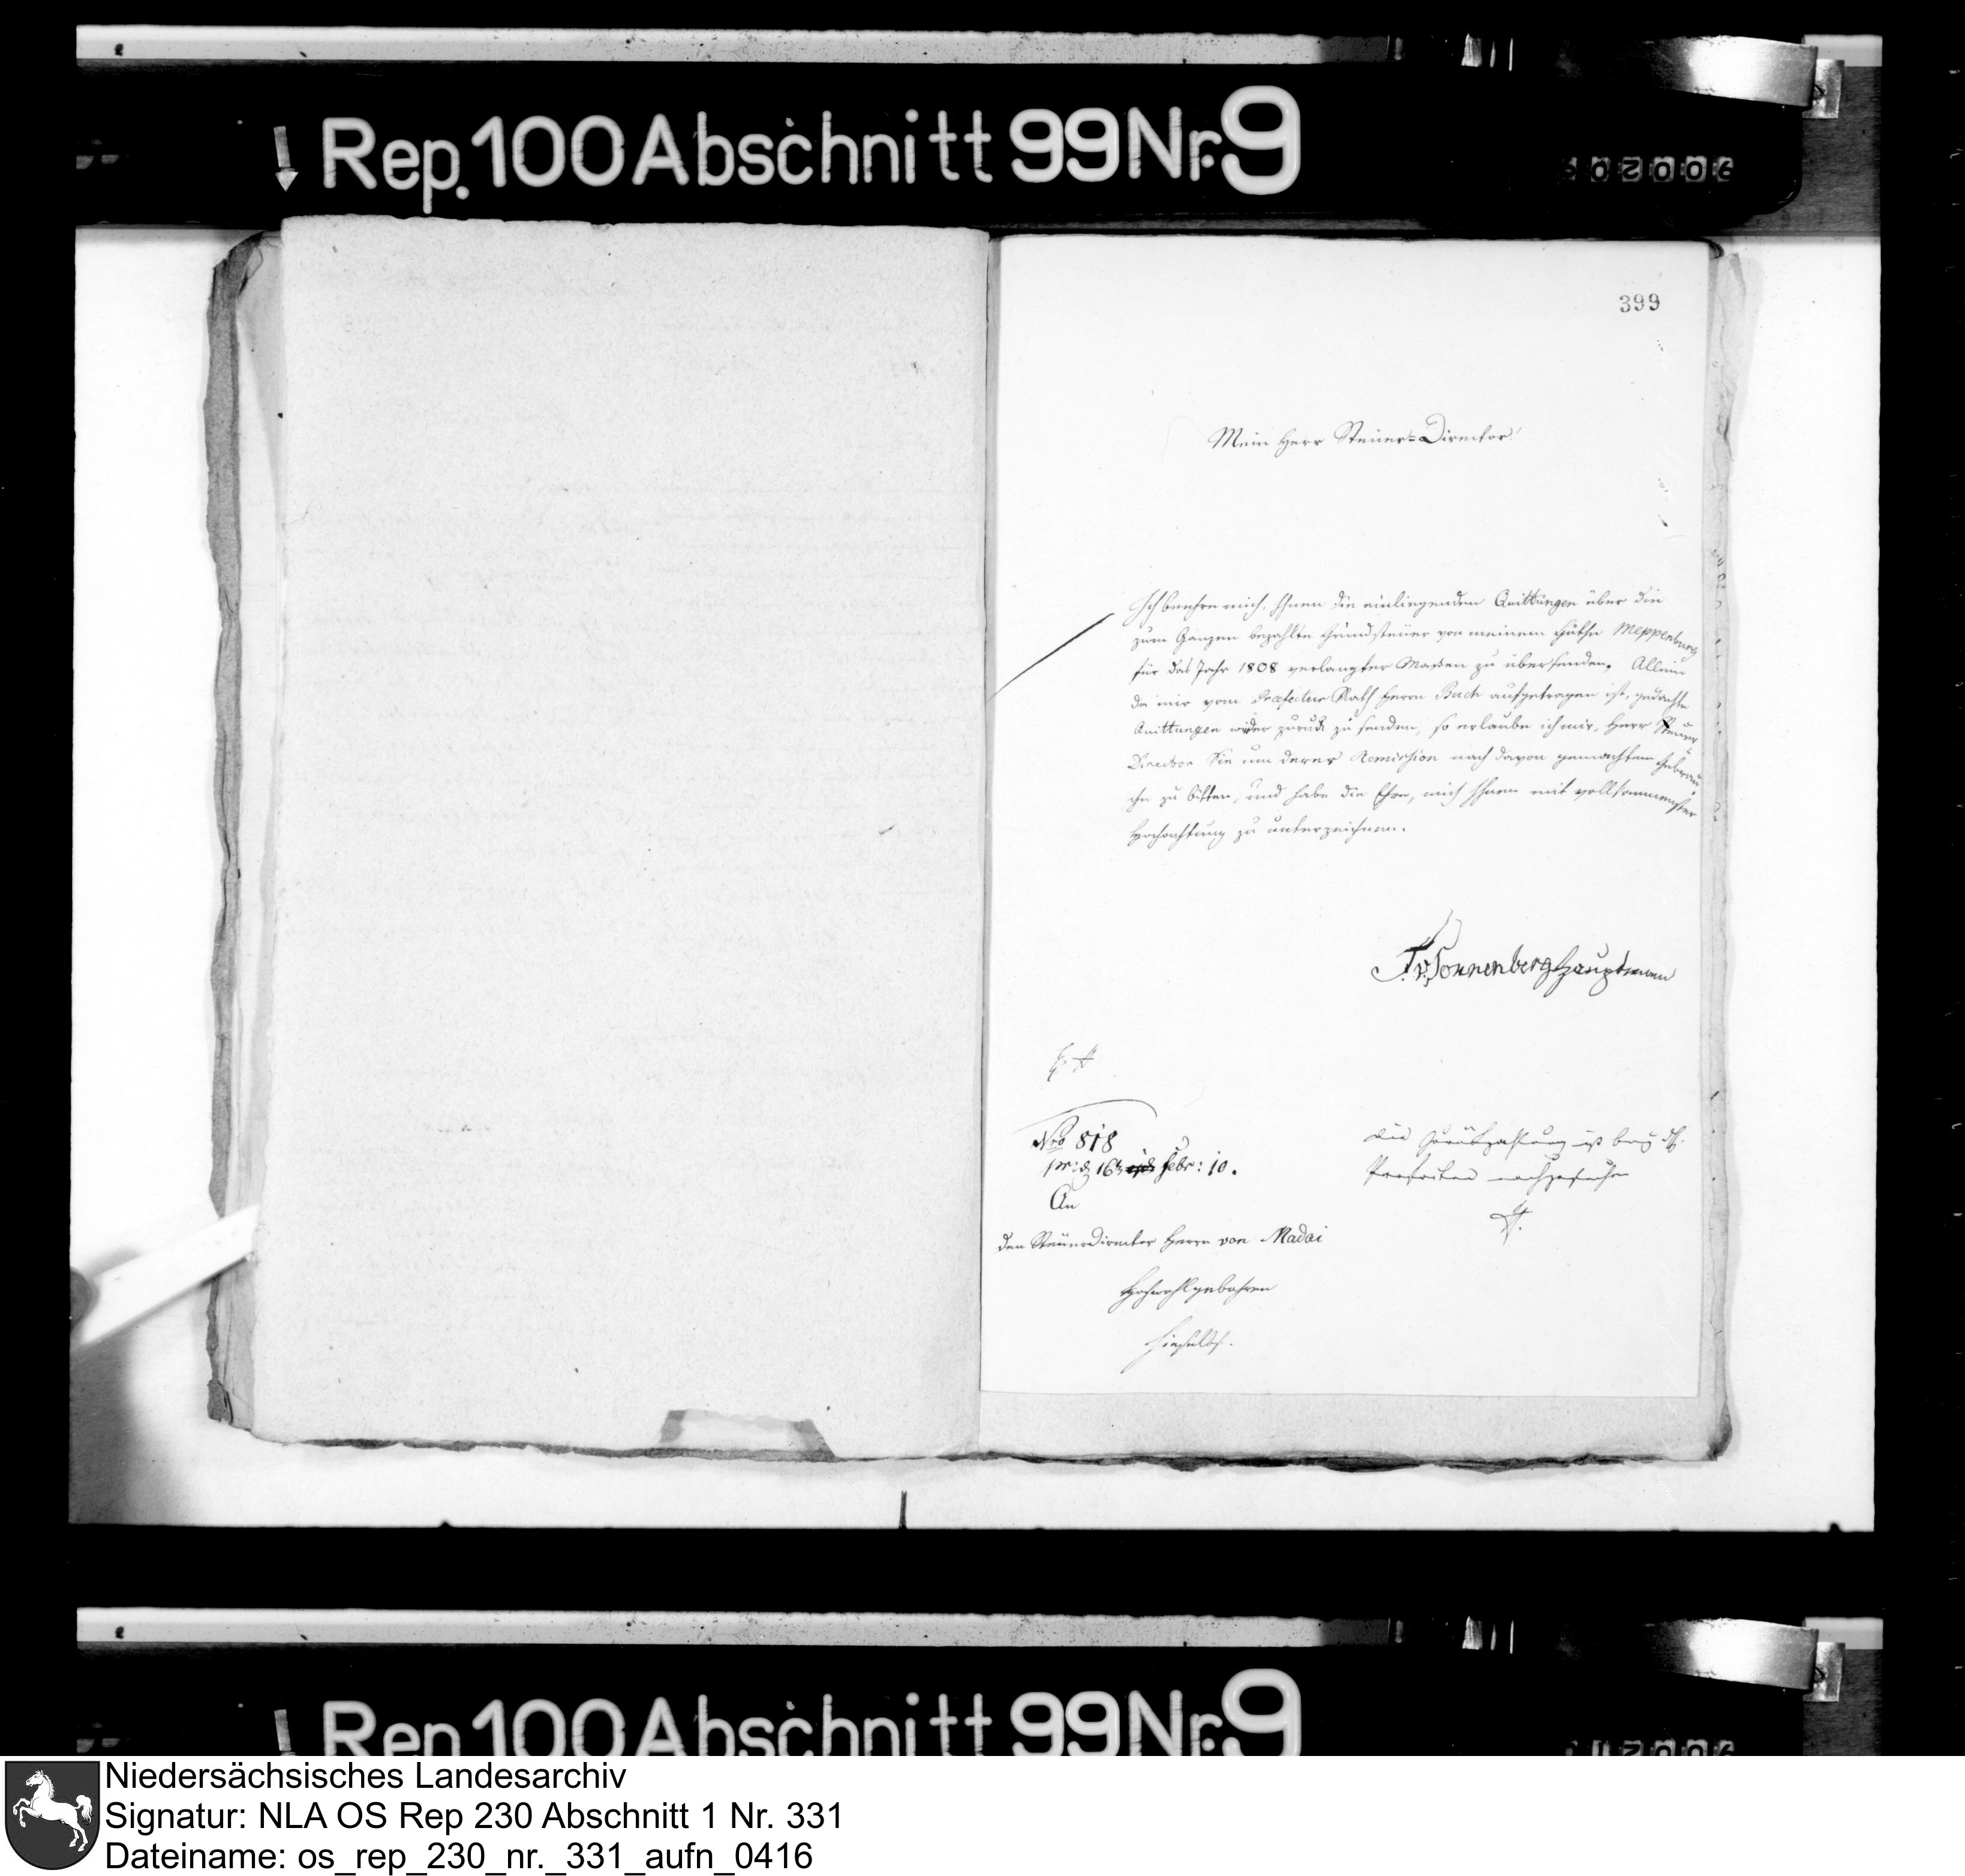 Rep. 100 Abschnitt 99 Nr. 9
399
Mein Herr Steuer-Director!
Ich beehre mich, Ihnen die einliegenden Quittungen über die
zum Ganzen bezahlte Grundsteuer von meinem Guthe Meppenburg
für das Jahr 1808 verlangter Maßen zu übersenden. Allein
da mir vom Praefectur Rath Herrn Buch aufgetragen ist, gedachte
Quittungen wieder zurück zu senden, so erlaube ich mir, Herr Steuer
Director Sie um derer Remission nach davon gemachtem Gebrau
che zu bitten, und habe die Ehre, mich Ihnen mit vollkommenster
Hochachtung zu unterzeichnen.
F. v. Sonnenberg Hauptmann
Nro 818
pr: d 16 Febr: 10.
An
den Steuerdirector Herrn von Madai
Hochwohlgebohren
hieselbst.
Die Zurükzahlung ist bey
Praefectur nachgesucht
Rep. 100 Abschnitt 99 Nr. 9
Niedersächsisches Landesarchiv
Signatur: NLA OS Rep 230 Abschnitt 1 Nr. 331
Dateiname: os_rep_230_nr._331_aufn_0416